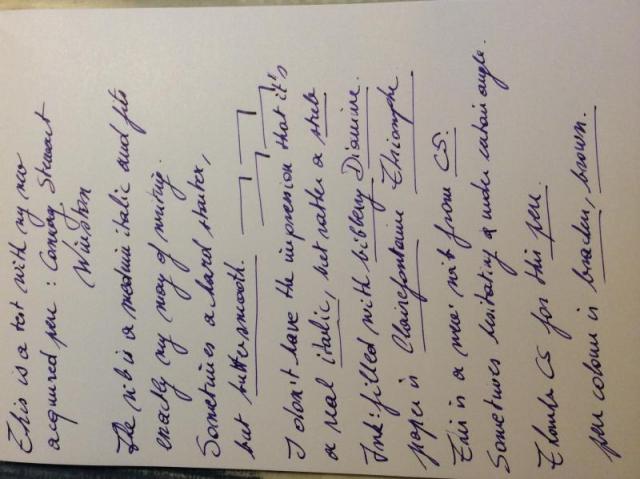 This is a test with my new
acquired pen: Conway Stewart
Winston
The nib is a medium italic and fits
exactly my way of writing.
Sometimes a hard starter,
but butter smooth.
I don't have the impression that it's
a real italic, but rather a stub
Ink: filled with bilberry Diamine.
paper is Clairefontaine Thriomphe
This is a nice nib from CS.
Sometimes hesitating a under certain angle.
Thanks CS for this pen.
pen colour is bracken, brown.